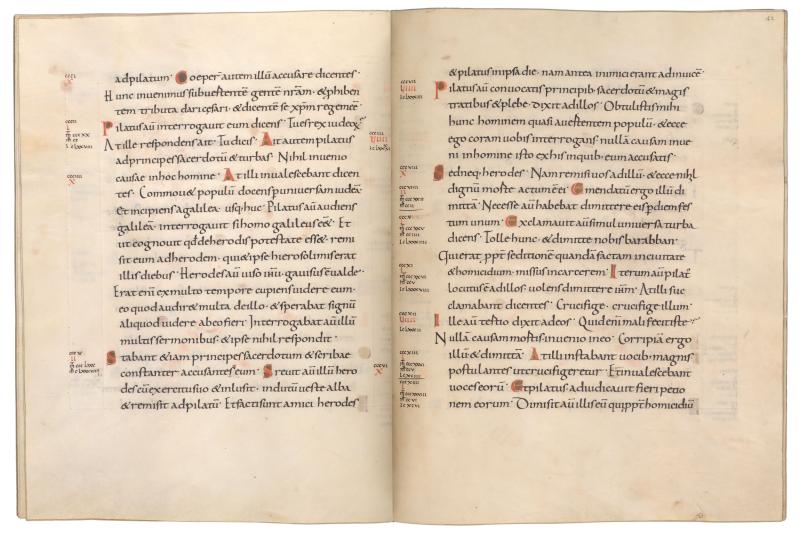 ad pilatum. Coeper autem illũ accusare dicentes.
Hunc inuenimus subuertentẽ gentẽ nr̃am. & phiben
tem tributa dari cesari. & dicentẽ se xp̃m regem eẽ.
Pilatus aũ interrogauit eum dicens. Tu es rex iudeoꝝ.
At ille respondens ait. Tu dicis. Ait autem pilatus
ad principes sacerdotũ & turbas. Nihil inuenio
causae in hoc homine. At illi inualescebant dicen
tes. Commou& populũ docens p uniuersam iudeã.
Et incipiens a galilea. usq; huc. Pilatus aũ audiens
galileã. interrogauit si homo galileus eẽ&. Et
ut cognouit qđ de herodis potestate esse&. remi
sit eum ad herodem. qui & ipse hierosolimis erat
illis diebus. Herodes aũ uiso ihũ. gauisus ẽ ualde.
Erat enĩ ex multo tempore cupiens uidere eum.
eo quod audir& multa de illo. & sperabat signũ
aliquod uidere ab eo fieri. Interrogabat aũ illũ
multis sermonibus. & ipse nihil respondit.
Stabant &iam principes sacerdotum & scribae
constanter accusantes eum. Spreuit aũ illũ hero
des cũ exercitu suo & inlusit. indutũ ueste alba
& remisit ad pilatũ. Et facti sunt amici herodes
42
& pilatus in ipsa die. nam antea inimici erant adinuicẽ.
Pilatus aũ conuocatis principib; sacerdotũ & magis
tratibus & plebe. dixit ad illos. Obtulistis mihi
hunc hominem quasi auertentem populũ. & ecce
ego coram uobis interrogans. nullã causam inue
ni in homine isto ex his in quib; eum accusatis.
Sed neq; herodes. Nam remisi uos ad illũ. & ecce nihil
dignũ morte actum ẽ ei. Emendatũ ergo illũ di
mittã. Necesse aũ habebat dimittere eis p diem fes
tum unum. Exclamauit aũ simul uniuersa turba
dicens. Tolle hunc. & dimitte nobis barabban.
Qui erat ppt̃ seditionẽ quandã factam in ciuitate
& homicidium. missus in carcerem. Iterum aũ pilat;
locutus ẽ ad illos. uolens dimittere ihm̃. At illi suc
clamabant dicentes. Crucifige. crucifige illum.
Ille aũ tertio dixit ad eos. Quid enĩ mali fecit iste.
Nullã causam mortis inuenio in eo. Corripiã ergo
illũ & dimittã. At illi instabant uocib; magnis
postulantes ut crucifigeretur. Et inualescebant
uoces eorũ. Et pilatus adiudicauit fieri petio
nem eorum. Dimisit aũ illis eũ qui ppt̃ homicidiũ